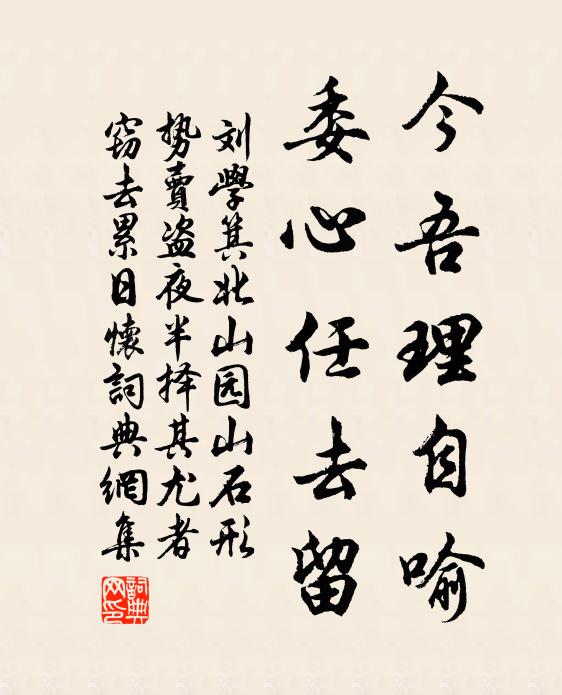 今吾理自喻
委心任去留
刘學箕北山园山石形
势賣盗夜半择其尤者
窃去累日懷詞典網集
詞典网印